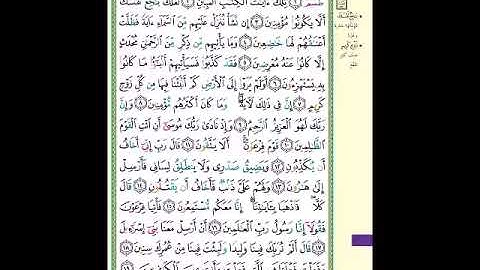 طسٓمٓ ١ تِلْكَ ءَايَٰتُ ٱلْكِتَٰبِ ٱلْمُبِينِ ٢ لَعَلَّكَ بَٰخِعٌ نَّفْسَكَ
أَلَّا يَكُونُوا۟ مُؤْمِنِينَ ٣ إِن نَّشَأْ نُنَزِّلْ عَلَيْهِم مِّنَ ٱلسَّمَآءِ ءَايَةً فَظَلَّتْ
أَعْنَٰقُهُمْ لَهَا خَٰضِعِينَ ٤ وَمَا يَأْتِيهِم مِّن ذِكْرٍ مِّنَ ٱلرَّحْمَٰنِ مُحْدَثٍ
إِلَّا كَانُوا۟ عَنْهُ مُعْرِضِينَ ٥ فَقَدْ كَذَّبُوا۟ فَسَيَأْتِيهِمْ أَنۢبَٰٓؤُا۟ مَا كَانُوا۟
بِهِۦ يَسْتَهْزِءُونَ ٦ أَوَلَمْ يَرَوْا۟ إِلَى ٱلْأَرْضِ كَمْ أَنۢبَتْنَا فِيهَا مِن كُلِّ زَوْجٍ
كَرِيمٍ ٧ إِنَّ فِى ذَٰلِكَ لَءَايَةً ۖ وَمَا كَانَ أَكْثَرُهُم مُّؤْمِنِينَ ٨ وَإِنَّ
رَبَّكَ لَهُوَ ٱلْعَزِيزُ ٱلرَّحِيمُ ٩ وَإِذْ نَادَىٰ رَبُّكَ مُوسَىٰٓ أَنِ ٱئْتِ ٱلْقَوْمَ
ٱلظَّٰلِمِينَ ١٠ قَوْمَ فِرْعَوْنَ ۚ أَلَا يَتَّقُونَ ١١ قَالَ رَبِّ إِنِّىٓ أَخَافُ
أَن يُكَذِّبُونِ ١٢ وَيَضِيقُ صَدْرِى وَلَا يَنطَلِقُ لِسَانِى فَأَرْسِلْ
إِلَىٰ هَٰرُونَ ١٣ وَلَهُمْ عَلَىَّ ذَنۢبٌ فَأَخَافُ أَن يَقْتُلُونِ ١٤ قَالَ
كَلَّا ۖ فَٱذْهَبَا بِـَٔايَٰتِنَآ ۖ إِنَّا مَعَكُم مُّسْتَمِعُونَ ١٥ فَأْتِيَا فِرْعَوْنَ
فَقُولَآ إِنَّا رَسُولُ رَبِّ ٱلْعَٰلَمِينَ ١٦ أَنْ أَرْسِلْ مَعَنَا بَنِىٓ إِسْرَٰٓءِيلَ
١٧ قَالَ أَلَمْ نُرَبِّكَ فِينَا وَلِيدًا وَلَبِثْتَ فِينَا مِنْ عُمُرِكَ سِنِينَ ١٨